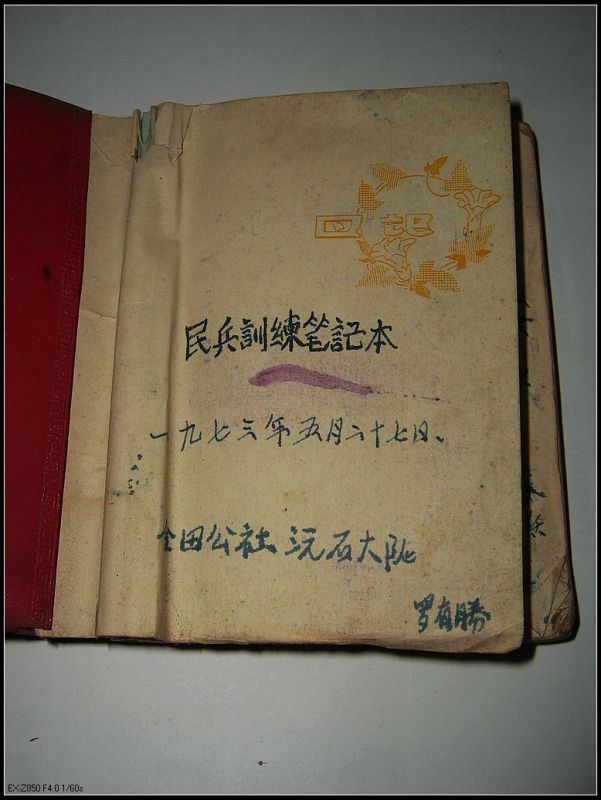 日记
民兵訓練笔記本
一九七三年五月二十七日。
田公社 沅石大
罗有勝
EX-Z850 F4.0 1/60s